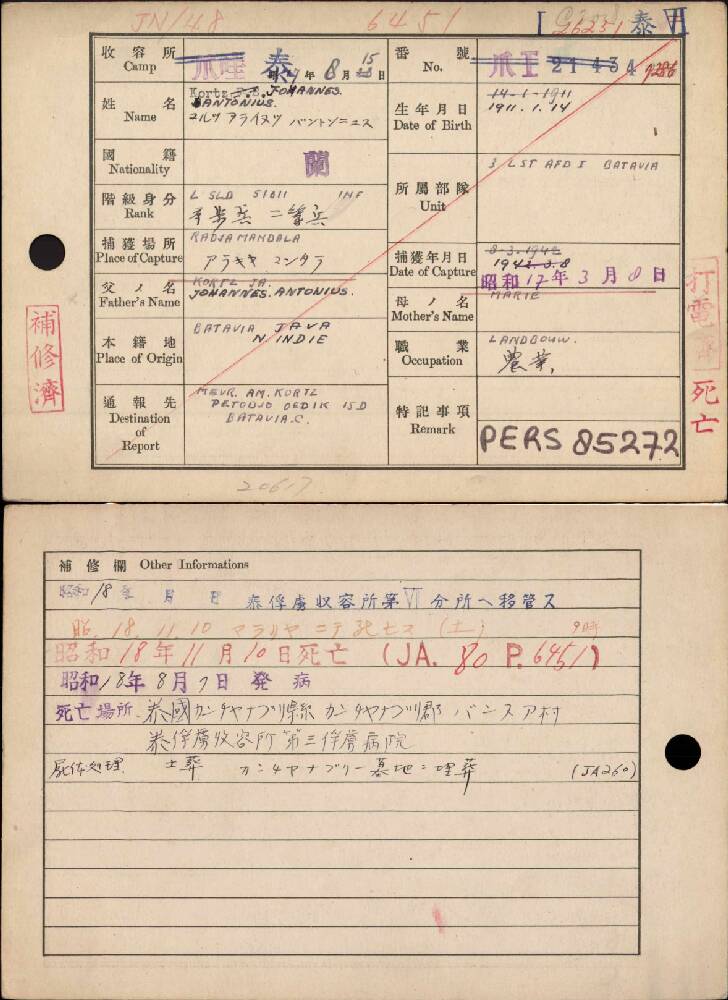 JN/48
6451
26251
泰 VI
收容所 Camp
爪哇 泰 17年 8月 15日
番號 No.
爪 I 21434 7286
姓名 Name
Kortz J.A. JOHANNES.
ANTONIUS.
生年月日 Date of Birth
14-1-1911
1911.1.14
國籍 Nationality
蘭
所屬部隊 Unit
3 LST AFD I BATAVIA
階級身分 Rank
L SLD 51811 INF
歩兵 二等兵
捕獲場所 Place of Capture
RADJAMANDALA
捕獲年月日 Date of Capture
8-3-1942
1942.3.8
昭和17年3月8日
父ノ名 Father's Name
KORTZ JA.
JOHANNES. ANTONIUS.
母ノ名 Mother's Name
MARIE
本籍地 Place of Origin
BATAVIA JAVA
N. INDIE
職業 Occupation
LANDBOUW.
農業,
通報先 Destination of Report
MEVR. AM. KORTZ
PETODJO OEDIK 15D
BATAVIA.C.
特記事項 Remark
PERS 85272
補修濟
打電濟
死亡
20617
補修欄 Other Informations
昭和18年 月 日 泰俘虜収容所第VI分所ヘ移管ス
昭.18.11.10 マラリヤニテ死亡ス (土) 9時
昭和18年11月10日死亡 (JA. 80 P. 6451)
昭和18年8月7日 発病
死亡場所. 泰國カンチヤナブリ縣カンチヤナブリ郡バンスア村
泰俘虜收容所第三俘虜病院
屍体処理 土葬 カンチヤナブリー墓地ニ埋葬 (JA260)